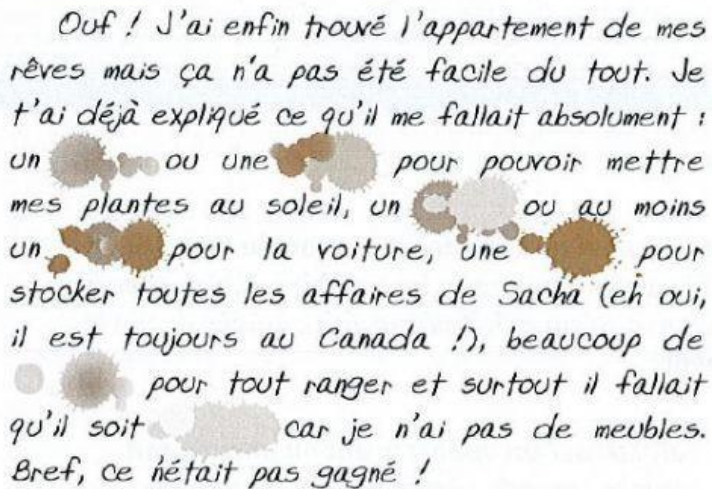 Ouf ! J'ai enfin trouvé l'appartement de mes
rêves mais ça n'a pas été facile du tout. Je
t'ai déjà expliqué ce qu'il me fallait absolument :
un ou une pour pouvoir mettre
mes plantes au soleil, un ou au moins
un pour la voiture, une pour
stocker toutes les affaires de Sacha (eh oui,
il est toujours au Canada !), beaucoup de
pour tout ranger et surtout il fallait
qu'il soit car je n'ai pas de meubles.
Bref, ce n'était pas gagné !